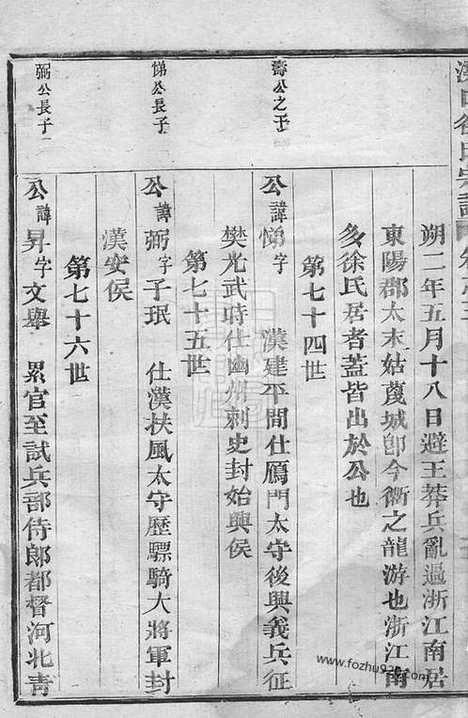 徐氏宗譜
朔二年五月十八日避王莽兵亂過浙江南居
東陽郡太末姑蔑城卽今衢之龍游也浙江南
多徐氏居者蓋皆出於公也
第七十四世
壽公之子
公諱悌字 漢建平間仕鴈門太守後興義兵征
樊光武時仕幽州刺史封始興侯
第七十五世
悌公長子
公諱弼字子珉 仕漢扶風太守歷驃騎大將軍封
漢安侯
第七十六世
弼公長子
公諱昇字文舉 累官至試兵部侍郎都督河北青
www.fozhu920.com